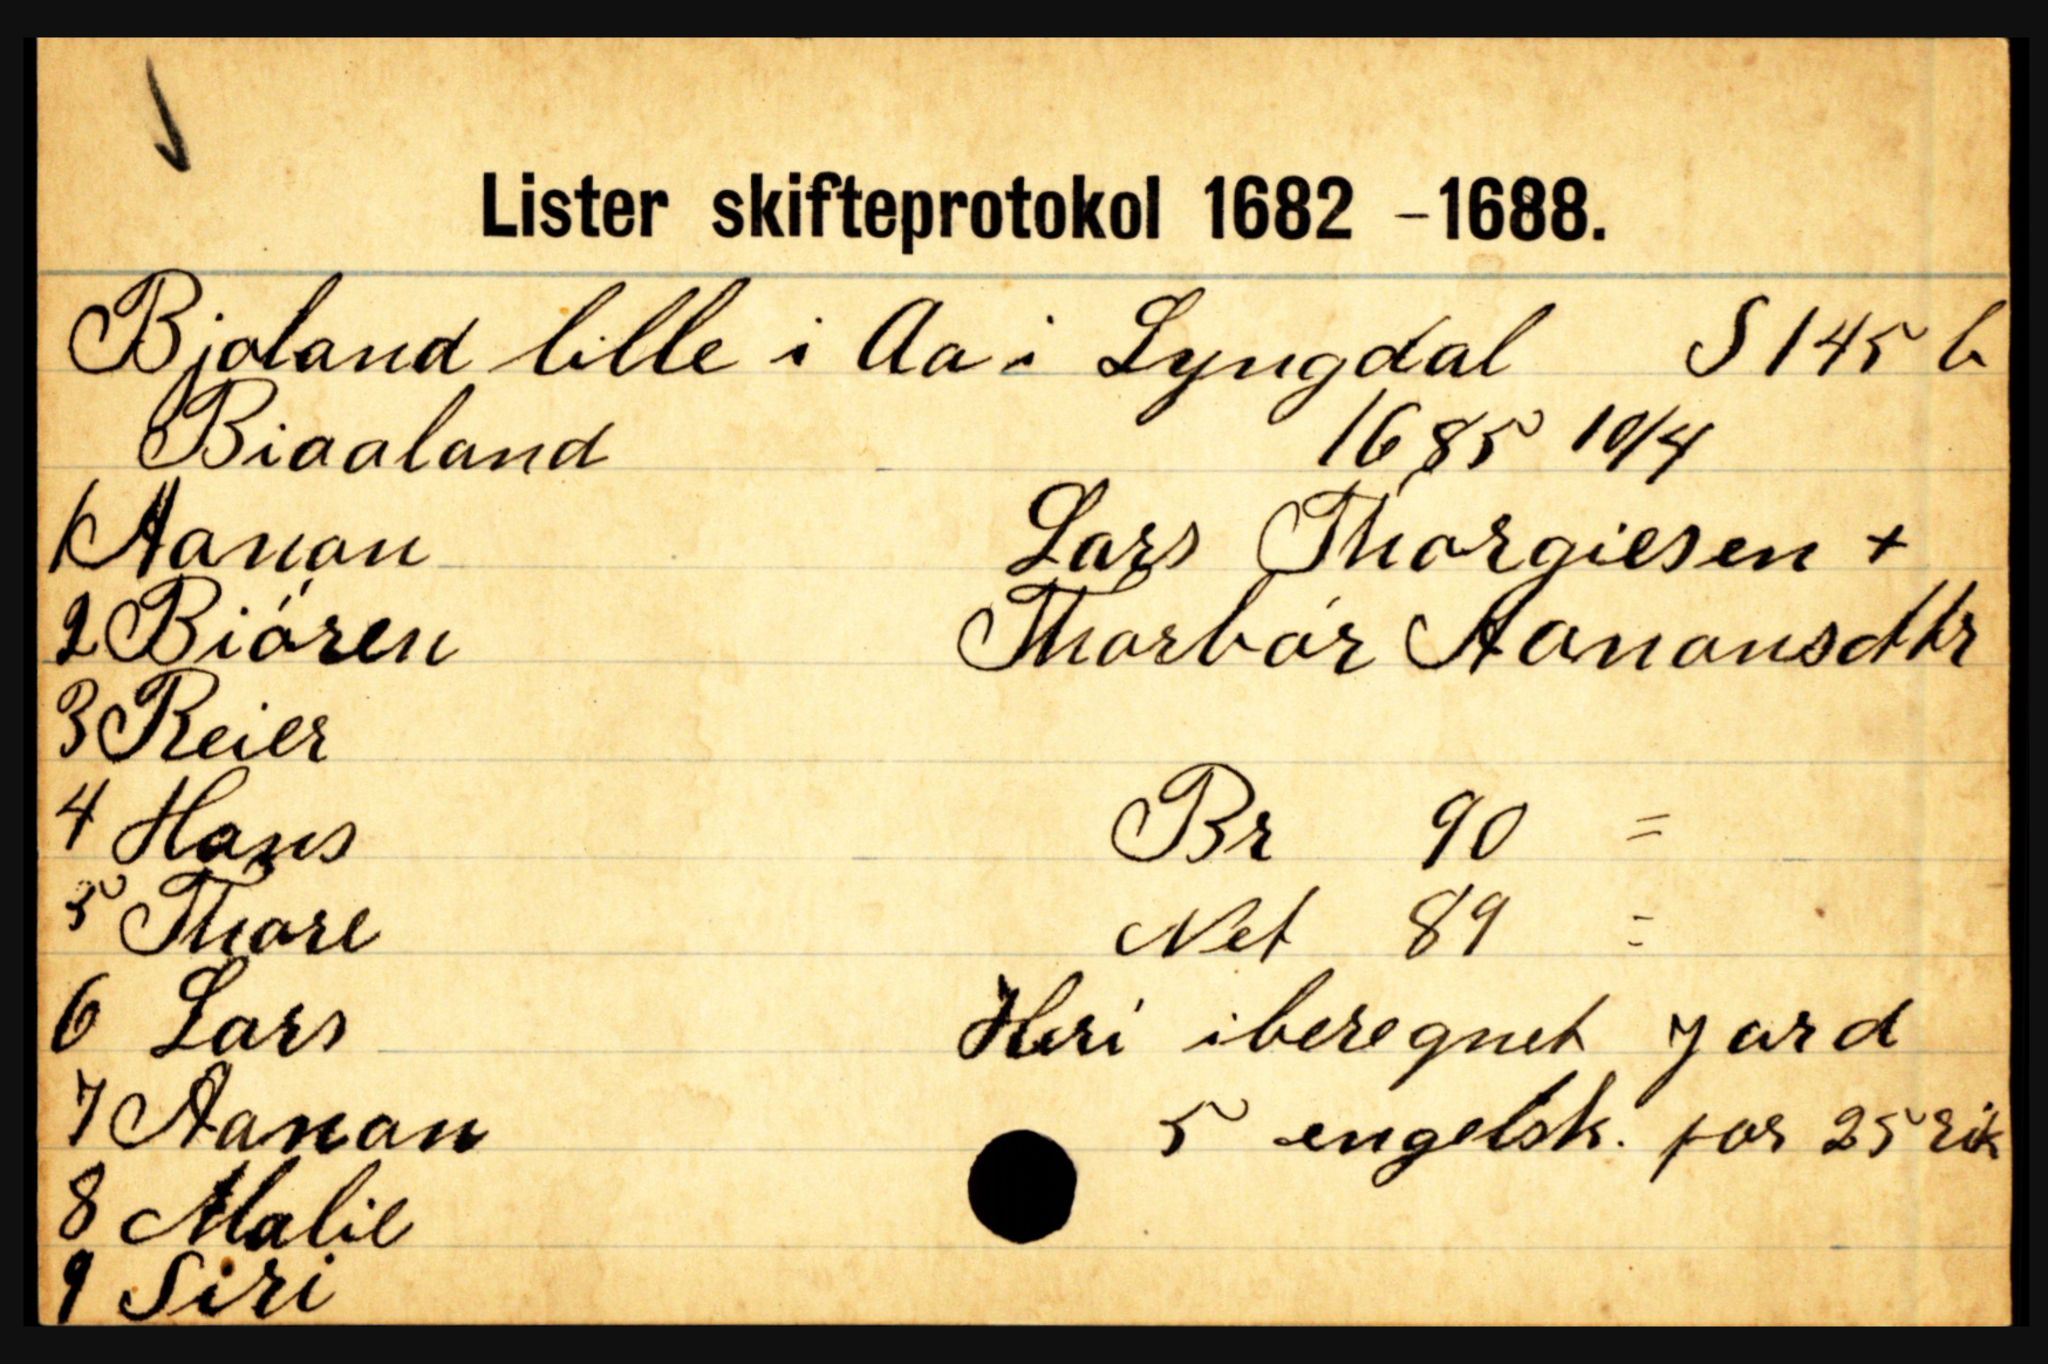 Lister skifteprotokol 1682 -1688.
Bjoland lille i Aa i Lyngdal S 145 b
Biaaland 1685 10/4
1 Aanon Lars Thorgiesen +
2 Biören Thorbör Aanonsdtr
3 Reier
4 Hans Br 90 =
5 Thore Net 89 =
6 Lars Heri iberegnet jord
7 Aanon 5 engelsk. for 25 rik
8 Malie
9 Siri